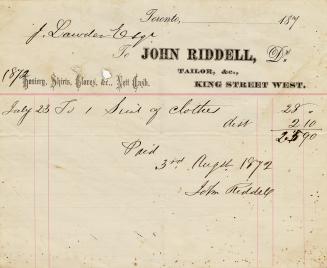 Toronto, 187
J. Lawder Esqr
To JOHN RIDDELL, Dr.
TAILOR, &c.,
1872 Hosiery, Shirts, Gloves, &c., Nett Cash. KING STREET WEST.
July 23 To 1 Suit of Clothes 28 "
dist 2.10
25 90
Paid
3rd Augst 1872
John Riddell